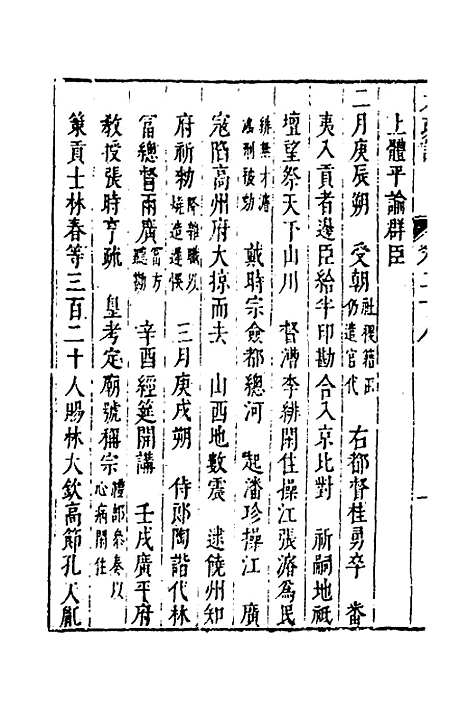 上體平諭群臣
二月庚辰朔 受朝社稷藉田仍遣官代 右都督桂勇卒 番
夷入貢者邊臣給半印勘合入京比對 祈嗣地祇
壇望祭天下山川 督漕李緋閑住操江張濬為民
緋無才濬濫刑被劾 戴時宗僉都總河 起潘珍操江 廣
寇陷高州府大掠而去 山西地數震 逮饒州知
府祈勑 三月庚戌朔 侍郎陶諧代林
富總督兩廣富方聽勘 辛酉經筵開講 壬戌廣平府
教授張時亨疏 皇考定廟號稱宗禮部參奏以心病閑住
策貢士林春等三百二十人賜林大欽高節孔天胤